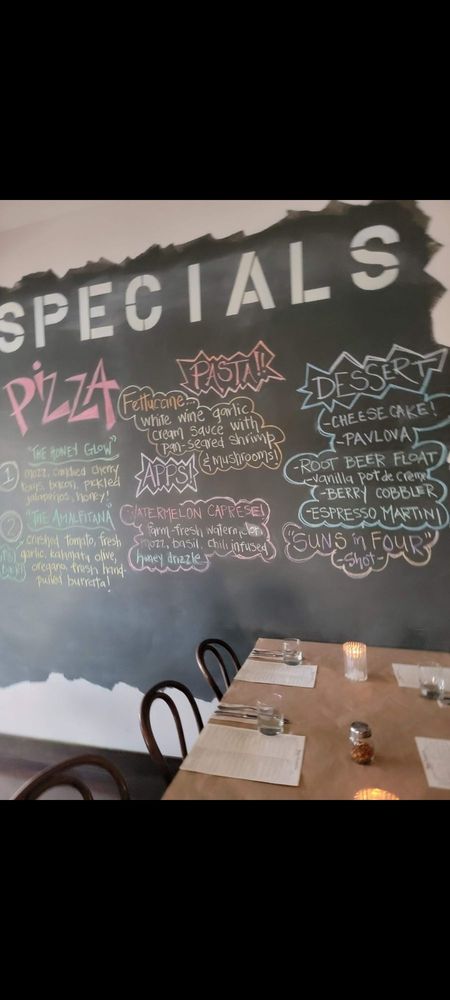 SPECIALS
PIZZA
"THE HONEY GLOW"
1
mozz, candied cherry
toms, bacon, pickled
jalapeños, honey!
2
"THE AMALFITANA"
crushed tomato, fresh
garlic, kalamata olive,
oregano, fresh hand-
pulled burrata!
PASTA!!
Fettuccine...
white wine garlic
cream sauce with
pan-seared shrimp
& mushrooms!
APPS!
WATERMELON CAPRESE!
farm-fresh watermelon
mozz, basil, chili infused
honey drizzle
DESSERT
-CHEESECAKE!
-PAVLOVA
-ROOT BEER FLOAT
-vanilla pot de creme
-BERRY COBBLER
-ESPRESSO MARTINI
"SUNS in FOUR"
-Shot-